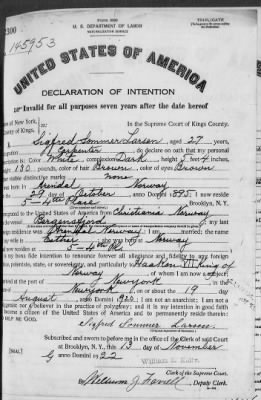 Form 2202
TRIPLICATE
U. S. DEPARTMENT OF LABOR
NATURALIZATION SERVICE
No. 145953
UNITED STATES OF AMERICA
DECLARATION OF INTENTION
Invalid for all purposes seven years after the date hereof
of New York,
County of Kings,
In the Supreme Court of Kings County.
Sigfred Sommer Larsen, aged 27 years,
Carpenter, do declare on oath that my personal
is: Color White, complexion Dark, height 5 feet 4 inches,
130 pounds, color of hair Brown, color of eyes Brown
visible distinctive marks none
Arendal Norway
October, anno Domini 1895; I now reside
5-4th Place, Brooklyn, N.Y.
to the United States of America from Christiania Norway
Bergensfjord; my last
residence was Arendal Norway; I am married; the name
wife is Esther; she was born at Norway
now resides at 5-4th Pl.
bona fide intention to renounce forever all allegiance and fidelity to any foreign
potentate, state, or sovereignty, and particularly to Haakon VII King of
Norway, of whom I am now a subject;
arrived at the port of New York, in the
New York, on or about the 19 day
August, anno Domini 1920; I am not an anarchist; I am not a
polygamist nor a believer in the practice of polygamy; and it is my intention in good faith
to become a citizen of the United States of America and to permanently reside therein:
SO HELP ME GOD.
Sigfred Sommer Larsen
Subscribed and sworn to before me in the office of the Clerk of said Court
at Brooklyn, N.Y., this 13 day of November
[SEAL] anno Domini 1922
William E. Kelly
Clerk of the Supreme Court.
Deputy Clerk.